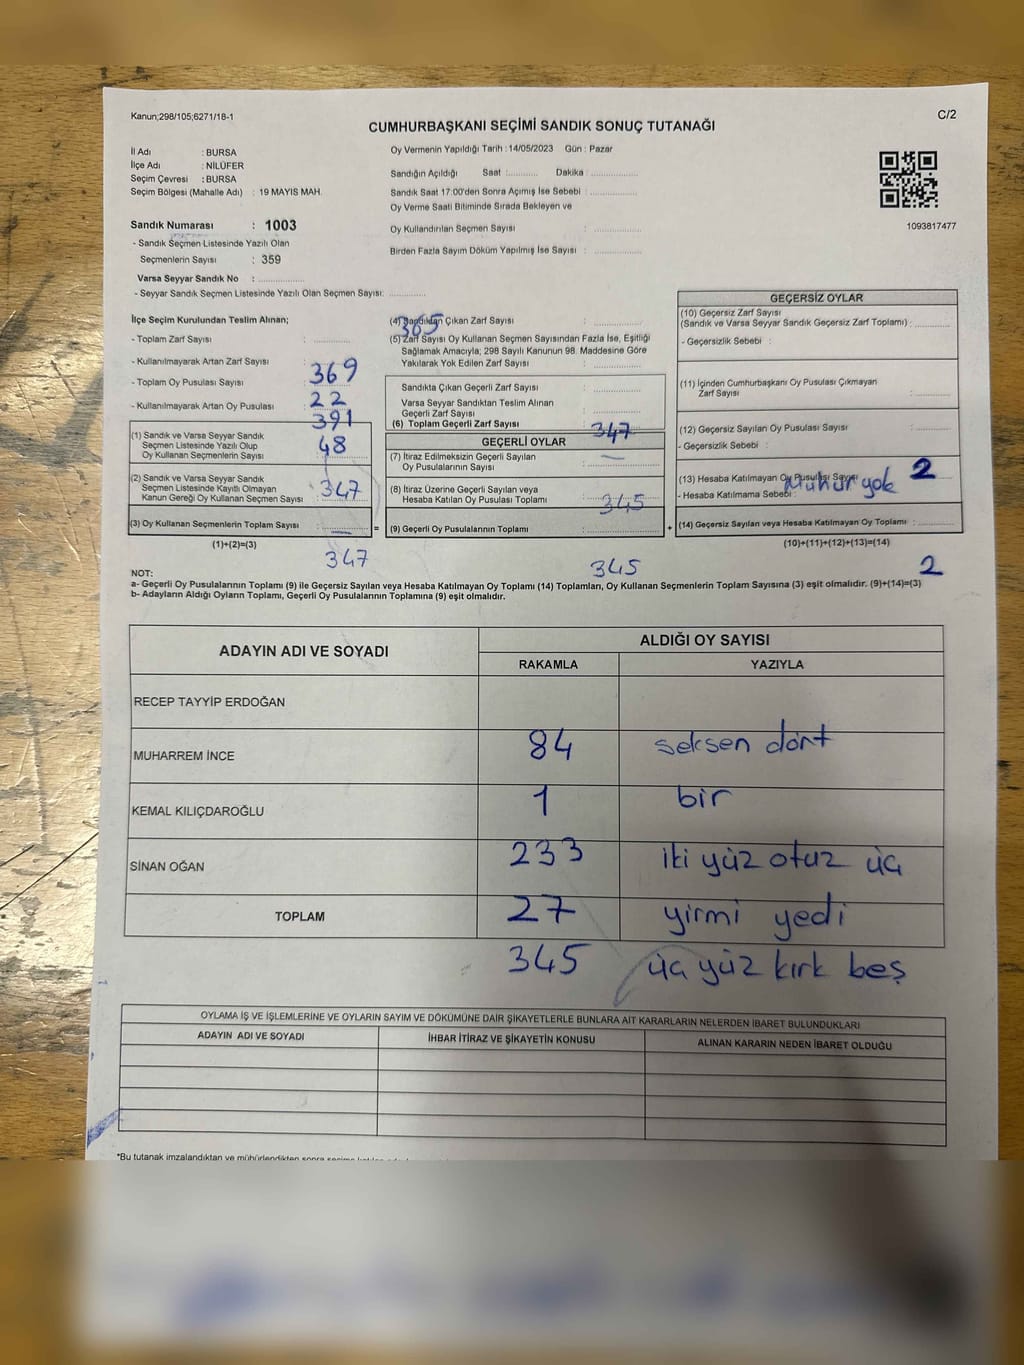 Kanun;298/105;6271/18-1
C/2
CUMHURBAŞKANI SEÇİMİ SANDIK SONUÇ TUTANAĞI
İl Adı : BURSA
İlçe Adı : NİLÜFER
Seçim Çevresi : BURSA
Seçim Bölgesi (Mahalle Adı) : 19 MAYIS MAH.
Sandık Numarası : 1003
- Sandık Seçmen Listesinde Yazılı Olan
Seçmenlerin Sayısı : 359
Varsa Seyyar Sandık No : ............
- Seyyar Sandık Seçmen Listesinde Yazılı Olan Seçmen Sayısı: ............
Oy Vermenin Yapıldığı Tarih : 14/05/2023 Gün : Pazar
Sandığın Açıldığı Saat :............ Dakika : ............
Sandık Saat 17:00'den Sonra Açımış İse Sebebi : ............
Oy Verme Saati Bitiminde Sırada Bekleyen ve
Oy Kullandırılan Seçmen Sayısı : ............
Birden Fazla Sayım Döküm Yapılmış İse Sayısı : ............
1093817477
İlçe Seçim Kurulundan Teslim Alınan;
- Toplam Zarf Sayısı : ............
- Kullanılmayarak Artan Zarf Sayısı : ............
369
- Toplam Oy Pusulası Sayısı : ............
22
- Kullanılmayarak Artan Oy Pusulası : ............
391
(1) Sandık ve Varsa Seyyar Sandık
Seçmen Listesinde Yazılı Olup
Oy Kullanan Seçmenlerin Sayısı : ............
48
(2) Sandık ve Varsa Seyyar Sandık
Seçmen Listesinde Kayıtlı Olmayan
Kanun Gereği Oy Kullanan Seçmen Sayısı : ............
347
(3) Oy Kullanan Seçmenlerin Toplam Sayısı : ............ =
—
(1)+(2)=(3)
347
(4) Sandıktan Çıkan Zarf Sayısı : ............
365
(5) Zarf Sayısı Oy Kullanan Seçmen Sayısından Fazla İse, Eşitliği
Sağlamak Amacıyla; 298 Sayılı Kanunun 98. Maddesine Göre
Yakılarak Yok Edilen Zarf Sayısı : ............
Sandıkta Çıkan Geçerli Zarf Sayısı : ............
Varsa Seyyar Sandıktan Teslim Alınan
Geçerli Zarf Sayısı : ............
(6) Toplam Geçerli Zarf Sayısı : ............
347
GEÇERLİ OYLAR
(7) İtiraz Edilmeksizin Geçerli Sayılan
Oy Pusulalarının Sayısı : ............
—
(8) İtiraz Üzerine Geçerli Sayılan veya
Hesaba Katılan Oy Pusulası Toplamı : ............
345
(9) Geçerli Oy Pusulalarının Toplamı : ............ +
345
GEÇERSİZ OYLAR
(10) Geçersiz Zarf Sayısı
(Sandık ve Varsa Seyyar Sandık Geçersiz Zarf Toplamı) : ............
- Geçersizlik Sebebi :
(11) İçinden Cumhurbaşkanı Oy Pusulası Çıkmayan
Zarf Sayısı : ............
(12) Geçersiz Sayılan Oy Pusulası Sayısı : ............
- Geçersizlik Sebebi :
(13) Hesaba Katılmayan Oy Pusulası Sayısı : 2
- Hesaba Katılmama Sebebi : Mühür yok
(14) Geçersiz Sayılan veya Hesaba Katılmayan Oy Toplamı : ............
(10)+(11)+(12)+(13)=(14)
2
NOT:
a- Geçerli Oy Pusulalarının Toplamı (9) ile Geçersiz Sayılan veya Hesaba Katılmayan Oy Toplamı (14) Toplamları, Oy Kullanan Seçmenlerin Toplam Sayısına (3) eşit olmalıdır. (9)+(14)=(3)
b- Adayların Aldığı Oyların Toplamı, Geçerli Oy Pusulalarının Toplamına (9) eşit olmalıdır.
ADAYIN ADI VE SOYADI
ALDIĞI OY SAYISI
RAKAMLA YAZIYLA
RECEP TAYYİP ERDOĞAN
84 seksen dört
MUHARREM İNCE
1 bir
KEMAL KILIÇDAROĞLU
233 iki yüz otuz üç
SİNAN OĞAN
27 yirmi yedi
TOPLAM
345 üç yüz kırk beş
OYLAMA İŞ VE İŞLEMLERİNE VE OYLARIN SAYIM VE DÖKÜMÜNE DAİR ŞİKAYETLERLE BUNLARA AİT KARARLARIN NELERDEN İBARET BULUNDUKLARI
ADAYIN ADI VE SOYADI İHBAR İTİRAZ VE ŞİKAYETİN KONUSU ALINAN KARARIN NEDEN İBARET OLDUĞU
*Bu tutanak imzalandıktan ve mühürlendikten sonra